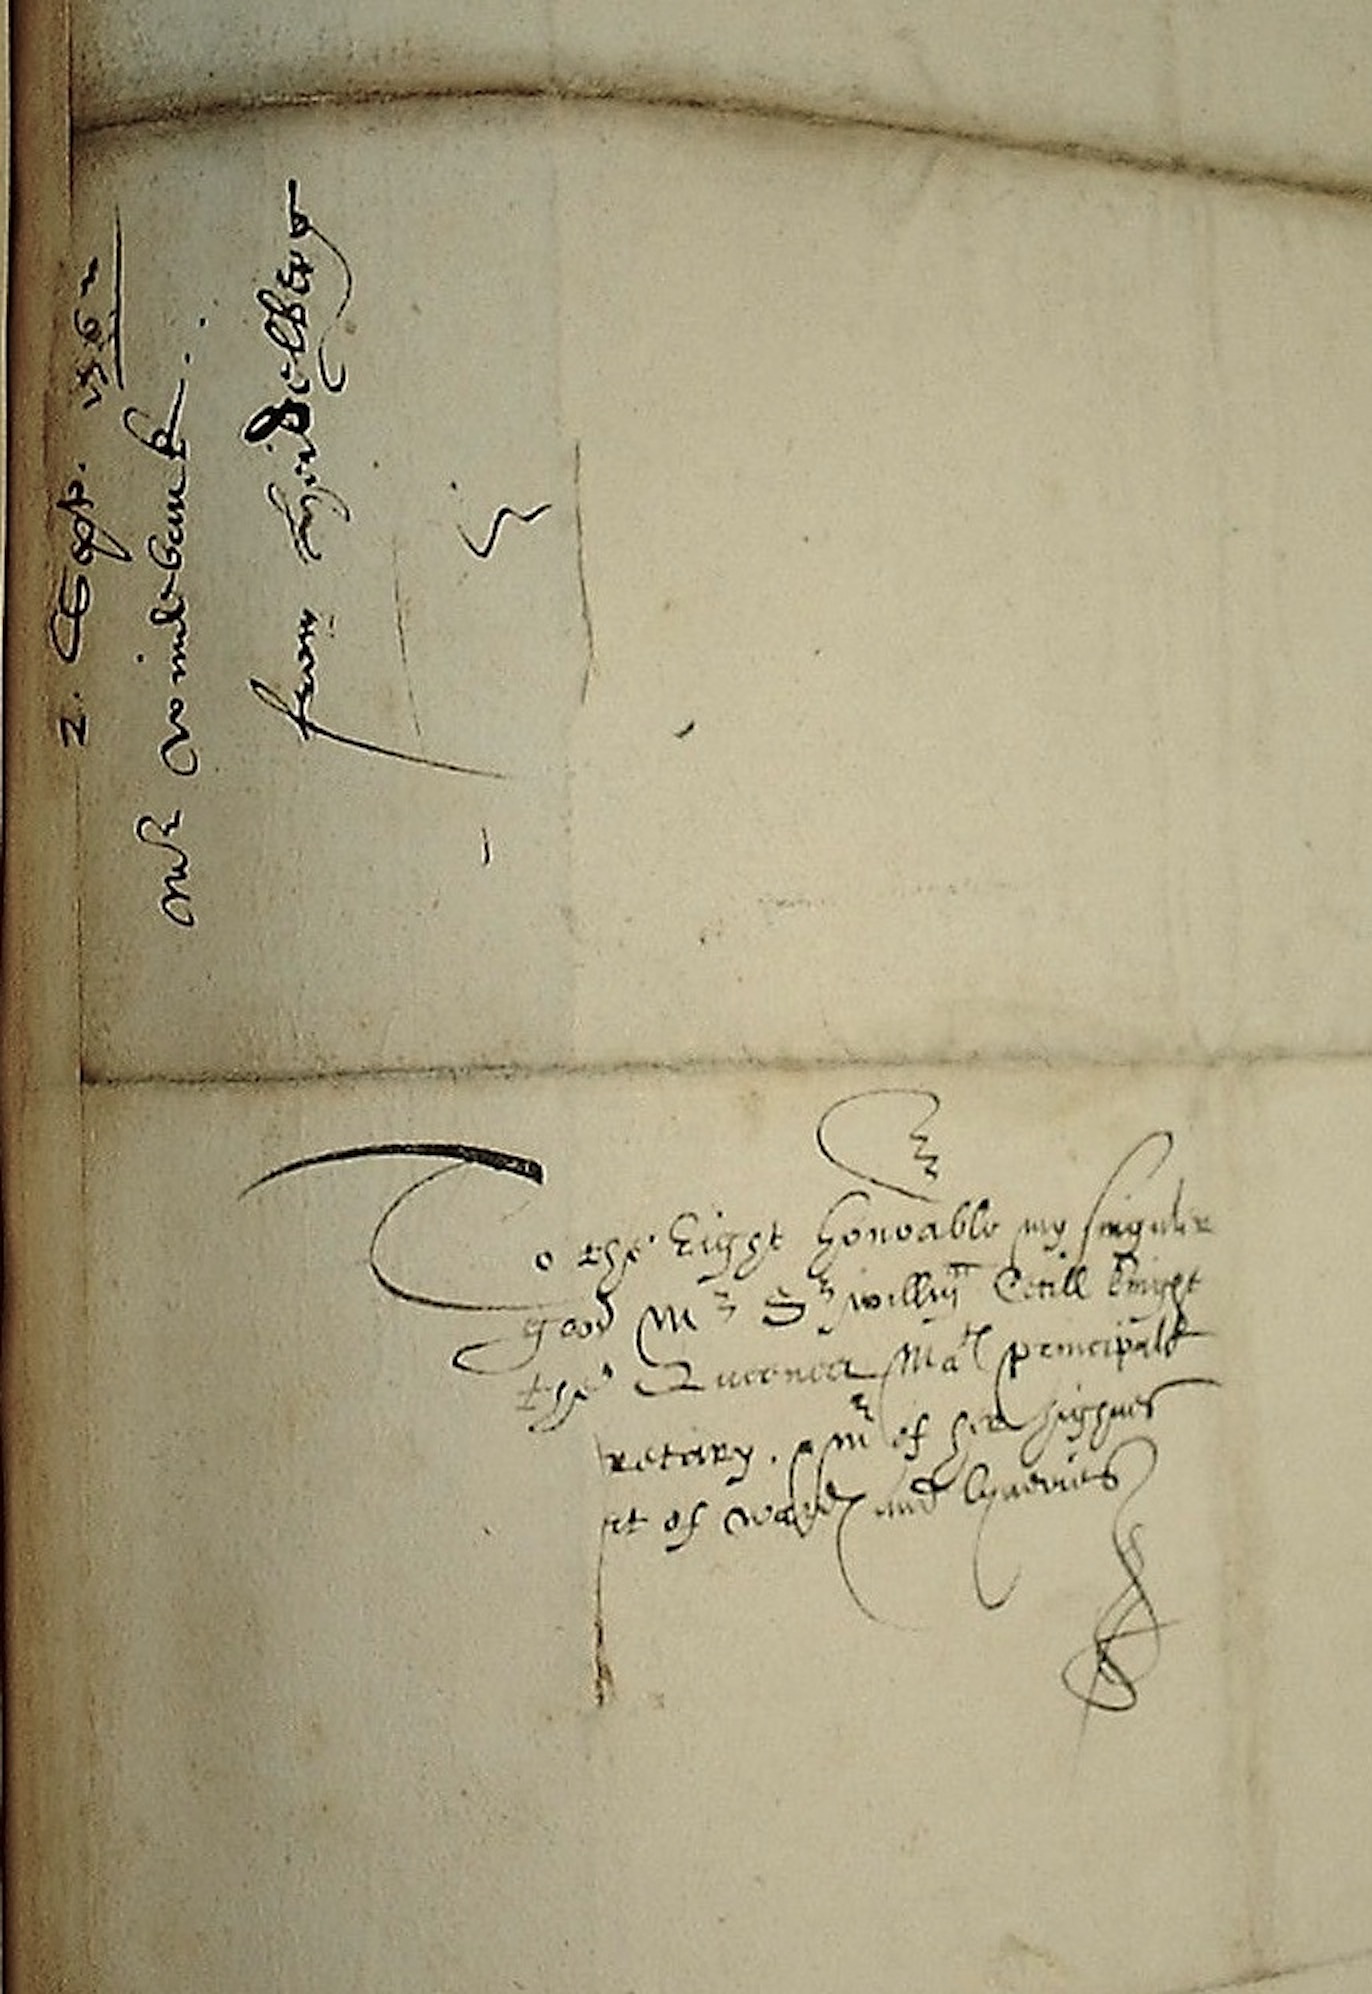 2. Sept. 1562
mr windebank.
from heidelberg
To the Right honorable my singuler
good Mr Sr Willm Cecill knight
the Quenes Mats principall
retary. & mr of her highnes
rt of wards and lyveries